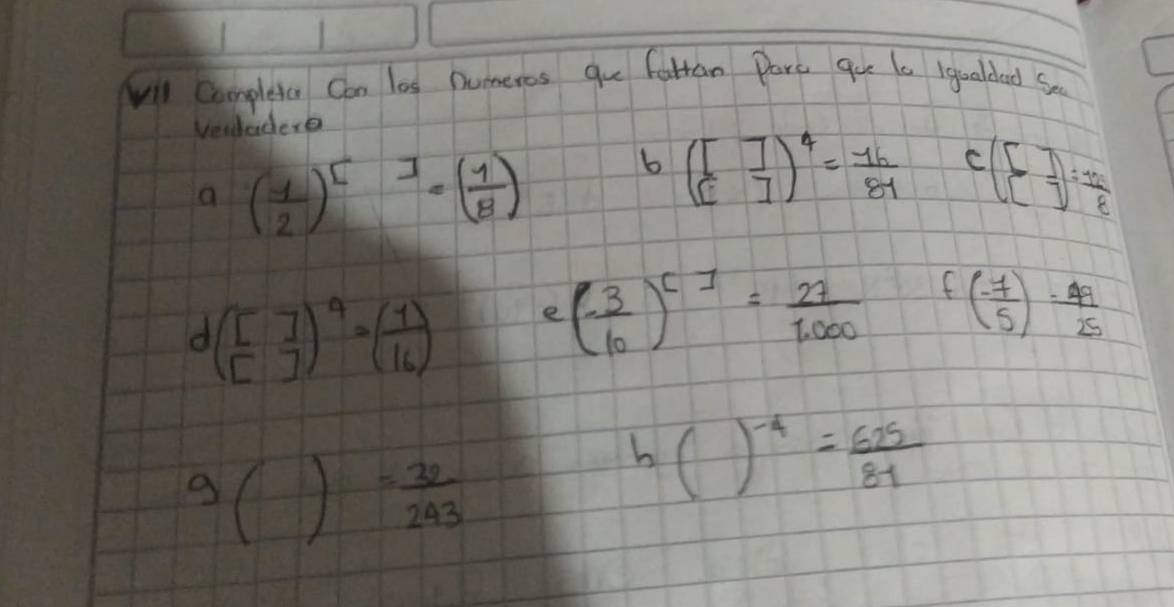 VII Completa Con los numeros que faltan Para que la igualdad Sea
verdadera
a (1/2)^[ ] = (1/8) b ([ ]/[ ])^4 = 16/81 c ([ ]/[ ]) = 125/8
d ([ ]/[ ])^4 = (1/16) e (-3/10)^[ ] = 27/1.000 f (-7/5) = 49/25
g ( ) = 32/243 h ( )^-4 = 625/81